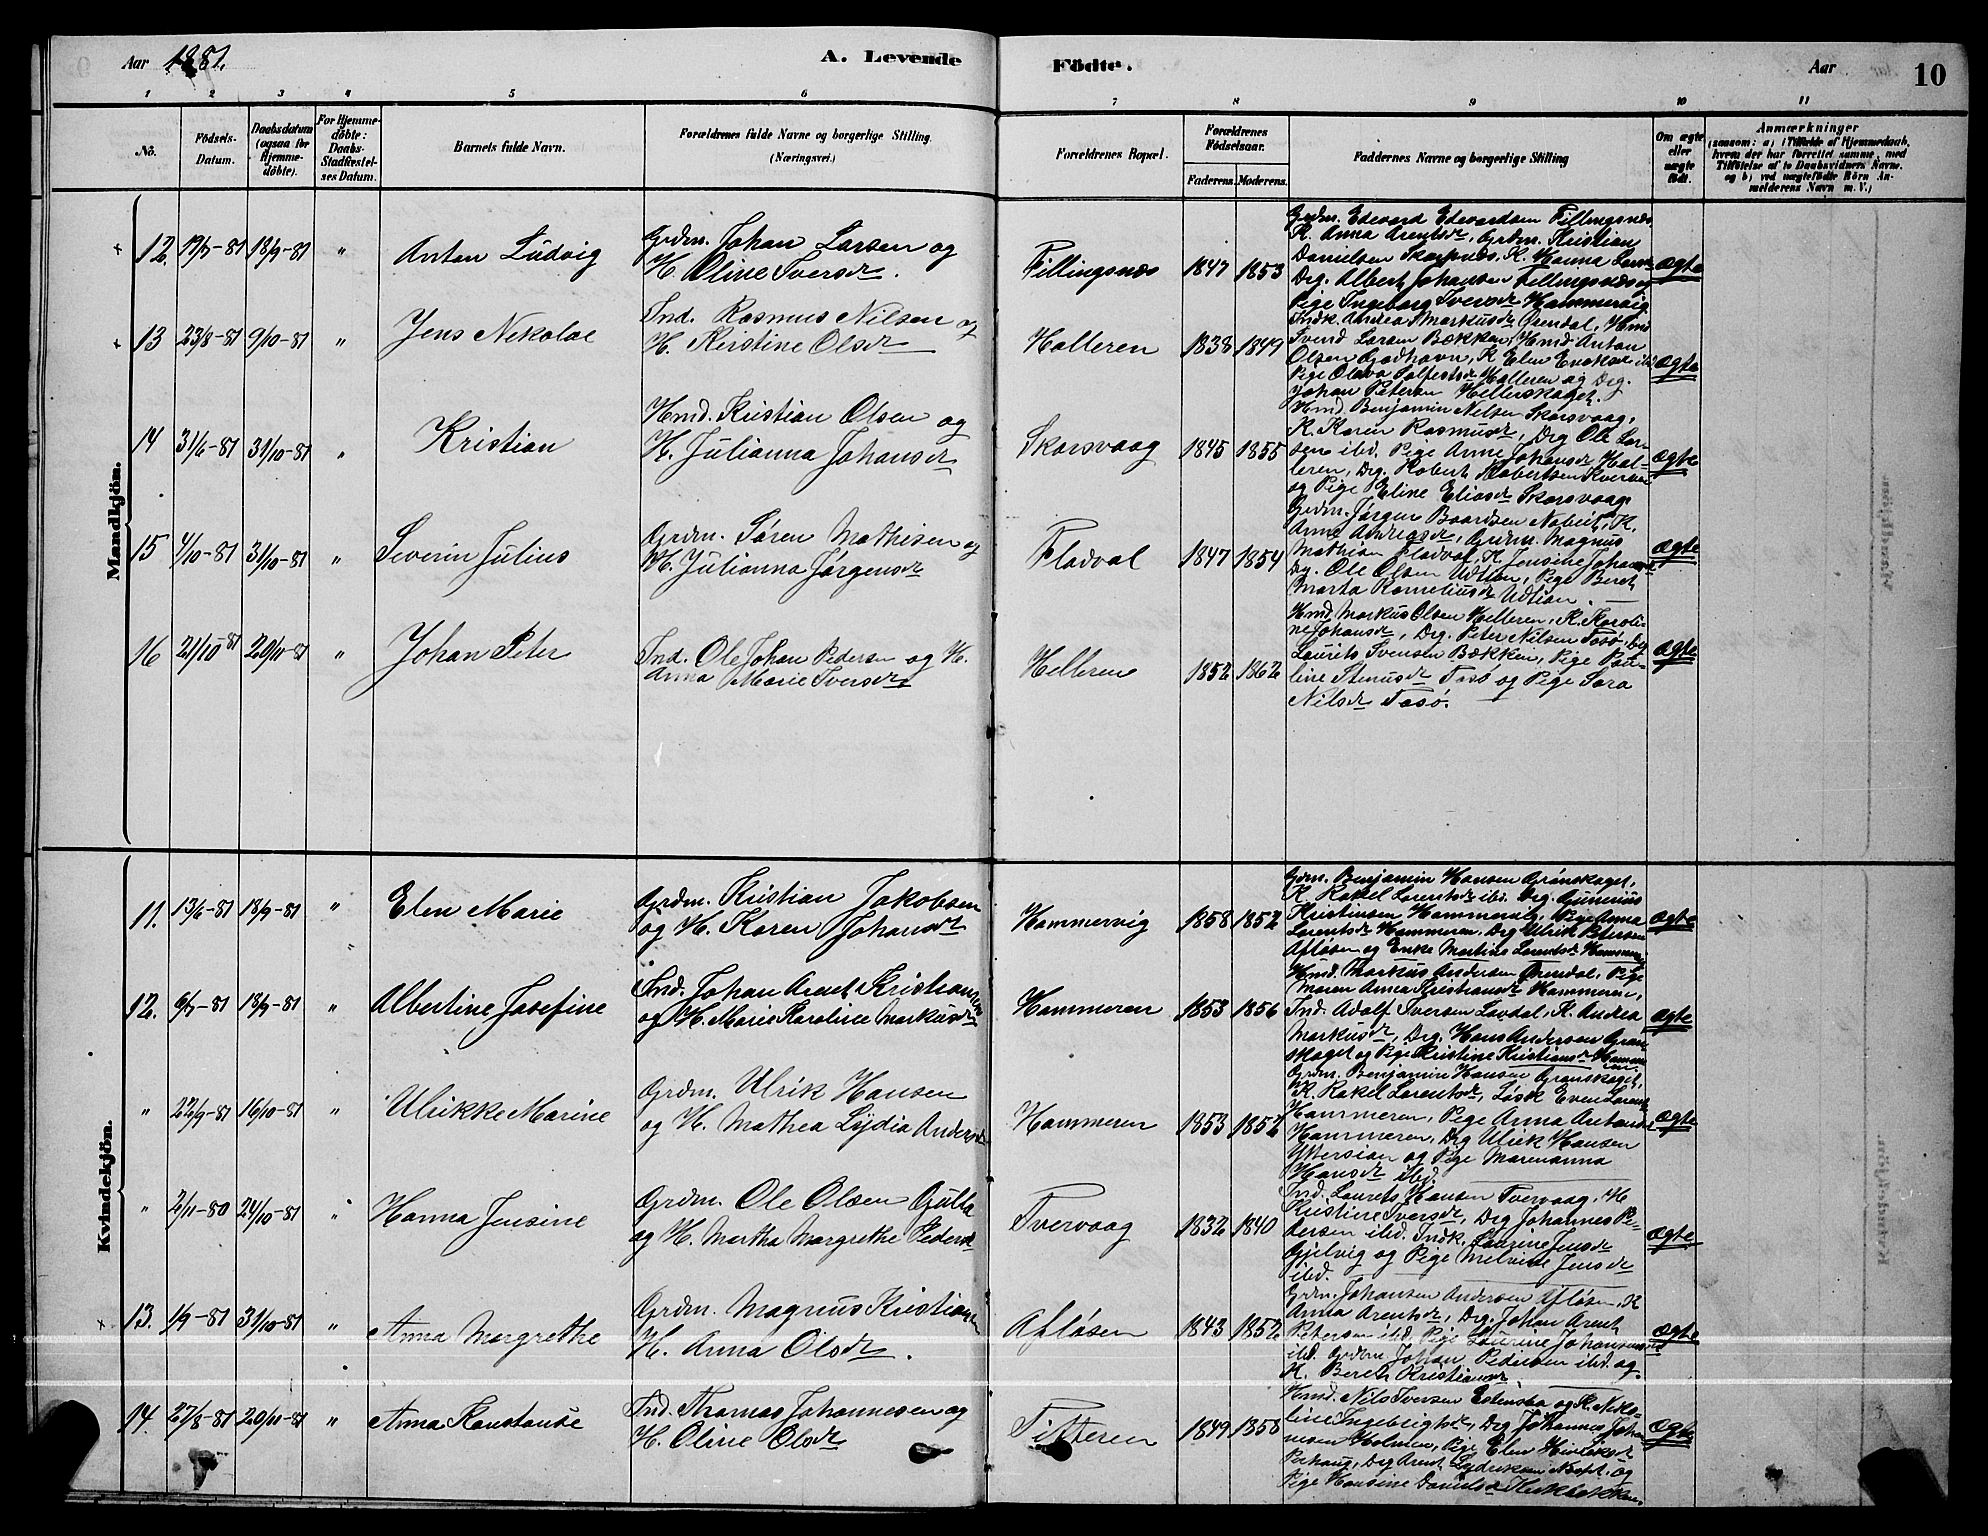 Aar 1881. A. Levende Födte. Aar 10
1 2 3 4 5 6 7 8 9 10 11
No.
Födsels-Datum.
Daabsdatum (ogsaa for Hjemme-döbte).
For Hjemme-döbte: Daabs-Stadfestel-ses Datum.
Barnets fulde Navn.
Forældrenes fulde Navne og borgerlige Stilling. (Næringsvei.)
Forældrenes Bopæl.
Forældrenes Födselsaar.
Faderens. Moderens.
Faddernes Navne og borgerlige Stilling
Om ægte eller uægte födt.
Anmærkninger
(saasom: a) i Tilfælde af Hjemmedaab, hvem der har forrettet samme, med Tilföielse af to Daabsvidners Navne, og b) ved uægtefödte Börn An-melderens Navn m. V.)
Mandkjön.
12. 18/9-81 " Anton Ludvig
Grdm. Johan Larsen og
H. Oline Iversdr.
Fillingsnæs 1847 1853
Grdm. Edevard Edevardsen Fillingsnæs,
K. Anna Arentsdr, Grdm. Kristian
Danielsen
Drg. Albert Johansen Fillingsnæs og
Pige Ingeborg Iversdr Hammervig
Ægte
13 23/8-81 9/10-81 " Jens Nekolae
Ind. Rasmus Nilsen og
H. Kristine Olsdr
Helleren 1838 1849
Indk. Andrea Markusdr Ørendal, Hmd
Svend Larsen Bækken, Hmd Anton
Olsen Godhavn, K. Elen
Pige Olava Helleren og Drg.
Johan Petersen Hellerskaget.
Ægte
14 31/6-81 31/10-81 " Kristian
Hmd. Kristian Olsen og
H. Julianna Johansdr
Skarsvaag 1845 1855
Hmd. Benjamin Nilsen Skarsvaag,
K. Karen Rasmusdr, Drg Ole Lar-
sen ibd. Pige Anne Johansdr Hel-
leren, Drg. Robert Robertsen
og Pige Eline Eliasdr Skarsvaag
Ægte
15 4/10-81 31/10-81 " Severin Julius
Grdm. Søren Mathisen og
H. Julianna Jørgensdr
Fladval 1847 1854
Grdm. Jørgen Baardsen Nabeit, K.
Anne Andersdr, Grdm. Magnus
Mathisen Fladval, K. Jensine Johansdr
Drg. Ole Olsen Udtian, Pige Beret
Marta Korneliusdr Udtian.
Ægte
16 21/10 81 20/11-81 " Johan Peter
Ind. Ole Johan Pedersen og H.
Anna Marie Iversdr
Helleren 1852 1862
Hmd. Markus Olsen Helleren, K. Karoli-
ne Johansdr, Drg. Peter Nilsen Tosø, Drg
Laurits Svensen Bækken, Pige Pau-
line Stenusdr Tosø og Pige Sara
Nilsdr Tosø.
Ægte
Kvindekjön.
11. 13/6-81 18/9-81 " Elen Marie
Grdm. Kristian Jakobsen
og H. Karen Johansdr
Hammervig 1858 1852
Grdm. Benjamin Hansen Grønskaget,
K. Rakel Larentsdr ibd. Drg. Gunerius
Kristensen Hammervig, Pige Anna
Larentsdr Hammeren, Drg Ulrik Petersen
Afløsen og Enke Martine Larentsdr Hammeren
Ægte
12. 18/9-81 " Albertine Josefine
Ind. Johan Arent Kristiansen
og H. Marie Karoline Markusdr
Hammeren 1853 1856
Hmd. Markus Andersen Ørendal, Pige
Maren Anna Kristiansdr Hammeren,
Ind. Adolf Iversen Lavdal, K. Andrea
Markusdr, Drg. Hans Andersen Grøn-
skaget og Pige Kristine Kristiansdr Hammeren
Ægte
" 22/9-81 16/10-81 " Ulrikke Marine
Grdm. Ulrik Hansen
og H. Mathea Lydia Andersdr
Hammeren 1853 1852
Grdm. Benjamin Hansen Grønskaget,
K. Rakel Larentsdr, Løsk Even Larents
Hammeren, Pige Anna Antonsdr
Hammeren, Drg Ulrik Hansen
Yttersian og Pige Marenanna
Hansdr ibd.
Ægte
" 2/11-80 24/10-81 " Hanna Jensine
Grdm. Ole Olsen Gulla
og H. Martha Margrethe Pedersdr
Tvervaag 1832 1840
Ind. Laurets Hansen Tvervaag, H
Kristine Iversdr, Drg Johannes Pe-
dersen ibd. Indk. Laurine Jensdr
Gjelvig og Pige Melvine Jensdr
ibd.
Ægte
13. 1/9-81 31/10-81 " Anna Margrethe
Grdm. Magnus Kristiansen
H. Anna Olsdr.
Afløsen 1843 1852
Grdm. Johansen Andersen Afløsen, K
Anna Arentsdr, Drg. Johan Arent
Petersen ibd. Pige Laurine Johansdr
ibd. Grdm. Johan Pedersen ibd. og
K. Bereth Kristiansdr.
Ægte
14. 27/8-81 20/11-81 " Anna Konstanse
Ind. Thomas Johannesen og
H. Oline Olsdr
Titteren 1849 1858
Hmd. Nils Iversen og K. Niko-
line Ingebrigtsdr, Drg Johannes Johan-
nesen Holmen, Pige Elen
Drg Arent og
Pige Hansine Danielsdr
Ægte